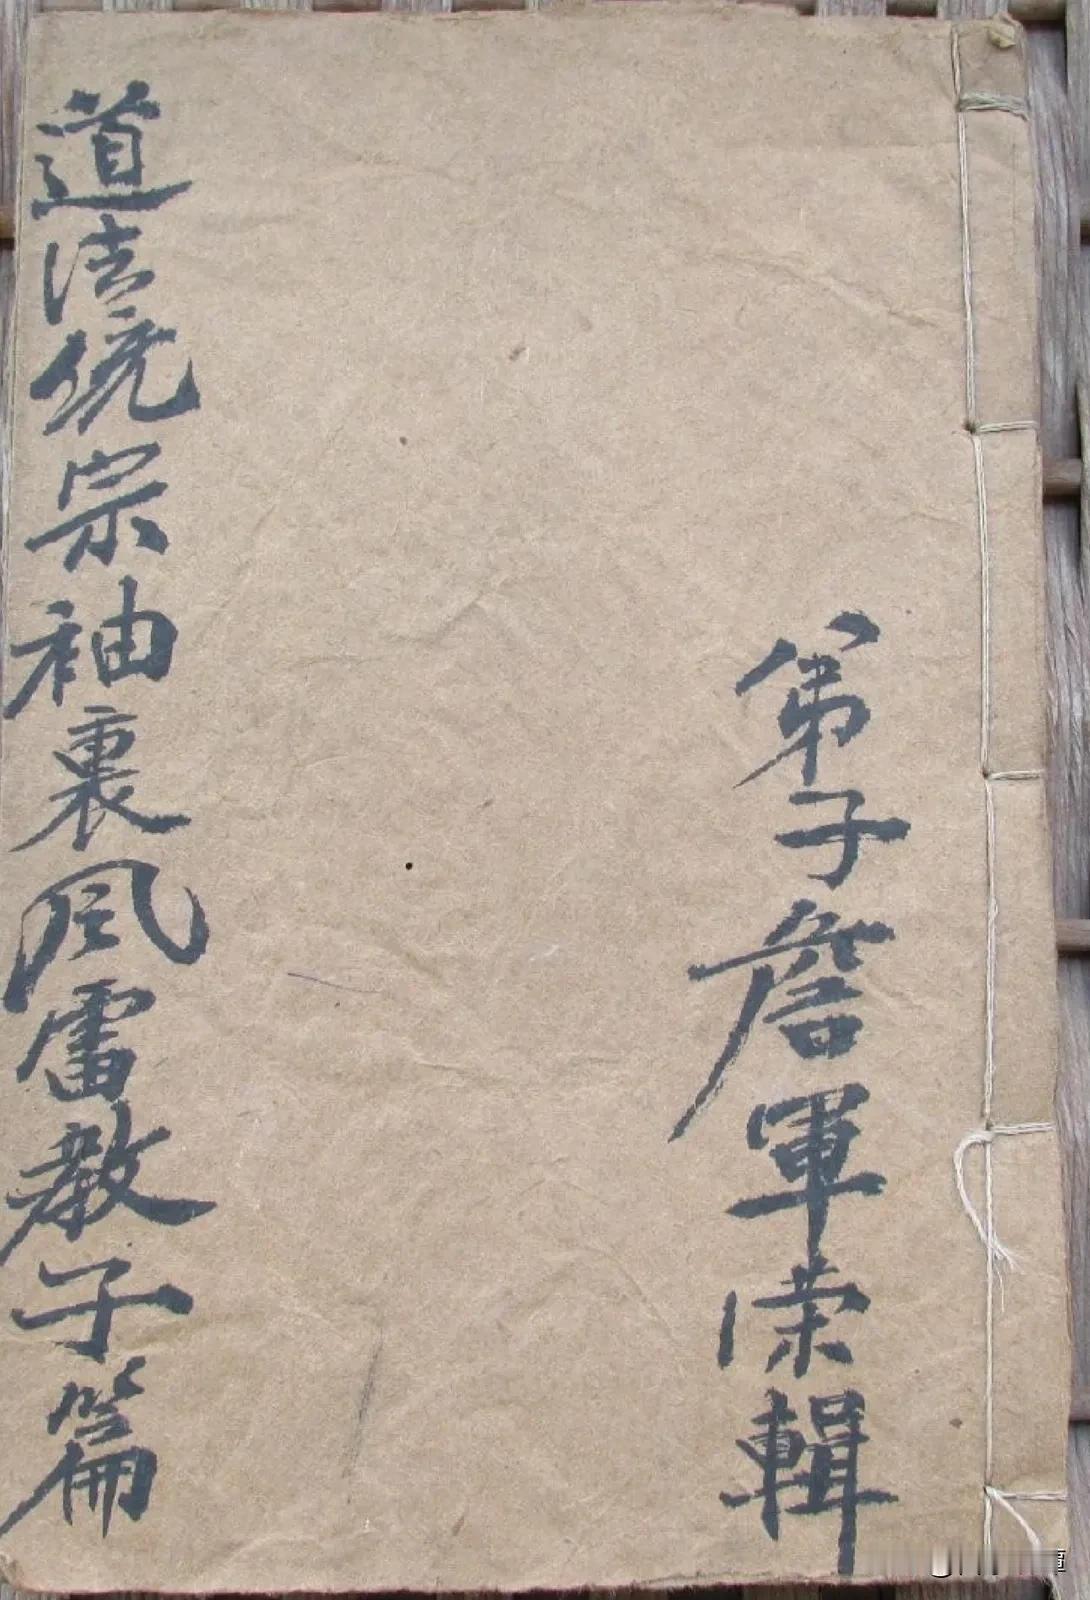 第子詹軍荣輯
道法統宗袖裏風雷教子篇